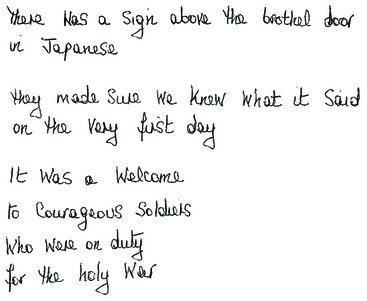 There was a sign above the brothel door
in Japanese
they made sure we knew what it said
on the very first day
It was a welcome
to courageous soldiers
who were on duty
for the holy war